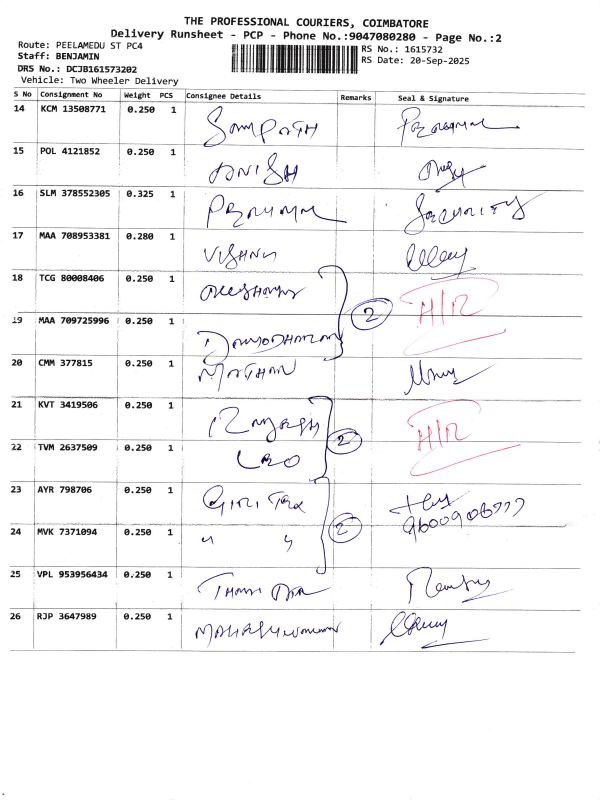 THE PROFESSIONAL COURIERS, COIMBATORE
Delivery Runsheet - PCP - Phone No.:9047080280 - Page No.:2
Route: PEELAMEDU ST PC4
Staff: BENJAMIN
DRS No.: DCJB161573202
Vehicle: Two Wheeler Delivery
RS No.: 1615732
RS Date: 20-Sep-2025
S No Consignment No Weight PCS Consignee Details Remarks Seal & Signature
14 KCM 13508771 0.250 1 SAMPATH
15 POL 4121852 0.250 1 ANISH
16 SLM 378552305 0.325 1 PERUMAL SECURITY
17 MAA 708953381 0.280 1 VISHNU
18 TCG 80008406 0.250 1 2 H/R
19 MAA 709725996 0.250 1 DAMODHARAN
20 CMM 377815 0.250 1 MATHAN
21 KVT 3419506 0.250 1 RAJESH 2 H/R
22 TVM 2637509 0.250 1 LEO
23 AYR 798706 0.250 1 2
24 MVK 7371094 0.250 1 " "
25 VPL 953956434 0.250 1
26 RJP 3647989 0.250 1